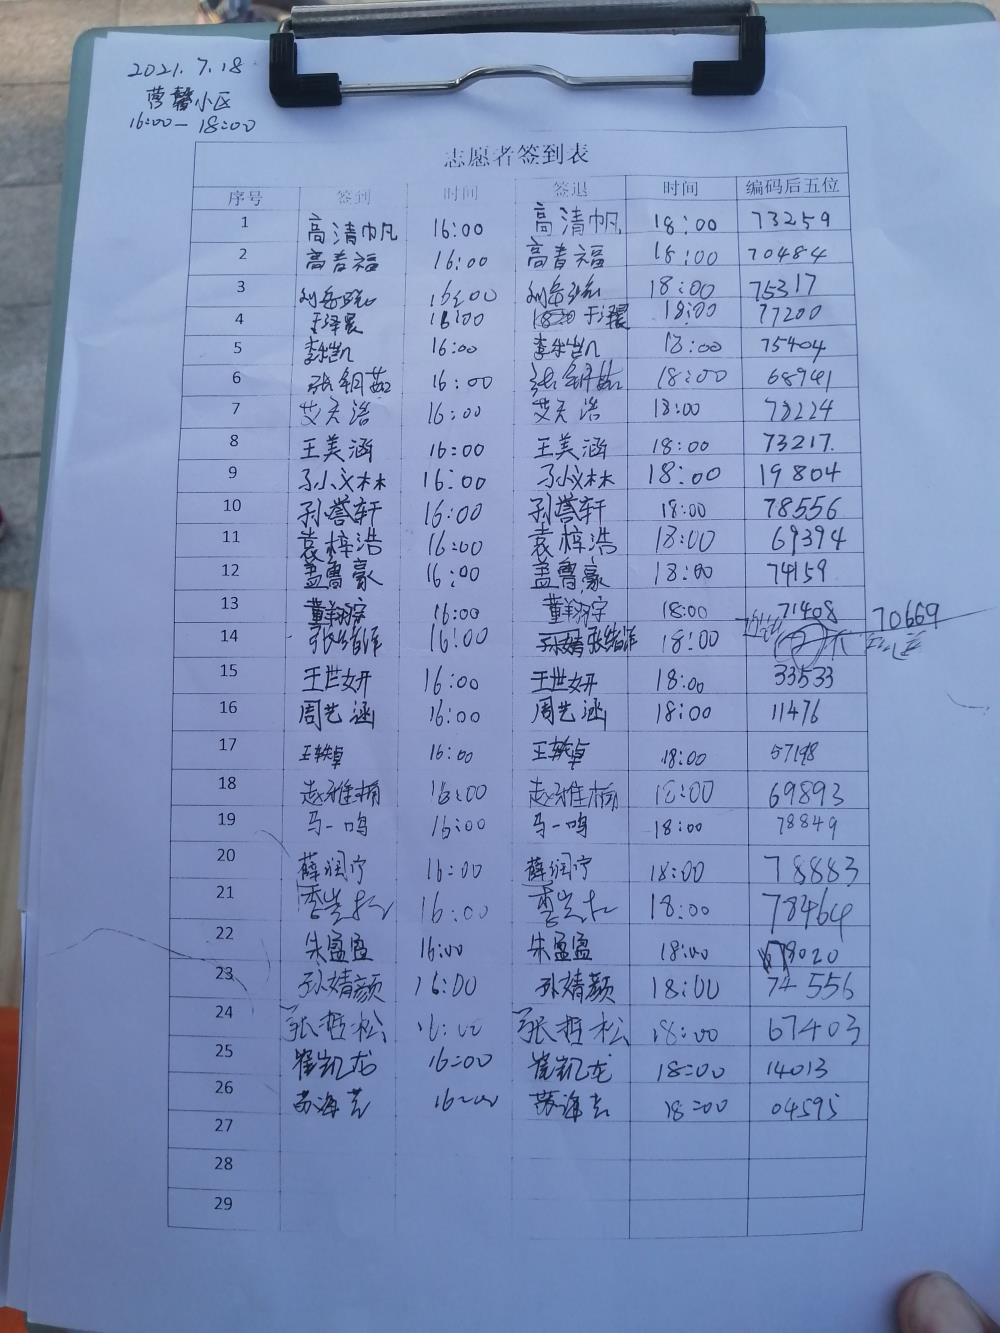 2021.7.18
馨小区
16:00-18:00
志愿者签到表
序号 签到 时间 签退 时间 编码后五位
1 高清帆 16:00 高清帆 18:00 73259
2 高青福 16:00 高青福 18:00 70484
3 16:00 18:00 75317
4 于泽晨 16:00 于泽晨 18:00 77200
5 16:00 18:00 75404
6 16:00 18:00 68941
7 艾天浩 16:00 艾天浩 18:00 78224
8 王美涵 16:00 王美涵 18:00 73217.
9 16:00 18:00 19804
10 孙誉轩 16:00 孙誉轩 18:00 78556
11 袁梓浩 16:00 袁梓浩 18:00 69394
12 盖鲁豪 16:00 盖鲁豪 18:00 74159
13 董翔宇 16:00 董翔宇 18:00 71408
14 16:00 18:00 70669
15 王世妍 16:00 王世妍 18:00 33533
16 周艺涵 16:00 周艺涵 18:00 11476
17 王轶卓 16:00 王轶卓 18:00 57198
18 赵雅楠 16:00 赵雅楠 18:00 69893
19 马一鸣 16:00 马一鸣 18:00 78849
20 薛润宁 16:00 薛润宁 18:00 78883
21 16:00 18:00 78464
22 朱盈盈 16:00 朱盈盈 18:00 78020
23 孙婧颜 16:00 孙婧颜 18:00 74556
24 张哲松 16:00 张哲松 18:00 67403
25 崔凯龙 16:00 崔凯龙 18:00 14013
26 16:00 18:00 04595
27
28
29